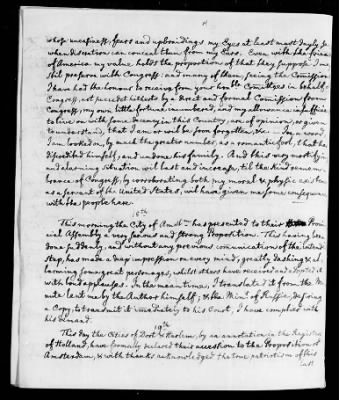 whose uneasiness, fears and upbraidings my Eyes at least must dayly see
when discretion can conceal them from my Ears. Even with the friends
of America my value holds the proportion of that they suppose I may
still preserve with Congress: and many of them, seeing the Commissions
I have had the honour to receive from your honble. Committees in behalf of
Congress, not succeeded hitherto by a direct and formal Commission from
Congress, my own little fortune incumbered, and my allowance insufficient
to live on with some decency in this Country, are of opinion, or given
to understand, that I am or will be soon forgotten, &c. In a word,
I am looked on, by much the greater number, as a romantic fool, that has
dissolved himself, and undone his family. And this very mortifying
and alarming situation will last and increase, till the kind remem-
brance of Congress, by corroborating both my moral & physic existence
as a servant of the United States, will have given me some consequence
with the people here.
18th
This morning the City of Amstm. has presented to their Provin-
cial Assembly a very famous and strong Proposition. This having been
done suddenly, and without any previous communication of the intended
step, has made a deep impression on every mind, greatly dashing & a-
larming some great personages, whilst others have received and adopted it
with loud applauses. In the mean time, I translated it from the Mi-
nute lent me by the Author himself; & the Minr. of Russia, desiring
a Copy, to transmit it immediately to his Court, I have complied with
his demand.
19th.
This day the Cities of Dort & Harlem, by an annotation in the Registers
of Holland, have formally declared their accession to the Proposition of
Amsterdam, & with thanks acknowledged the true patriotism of this
last